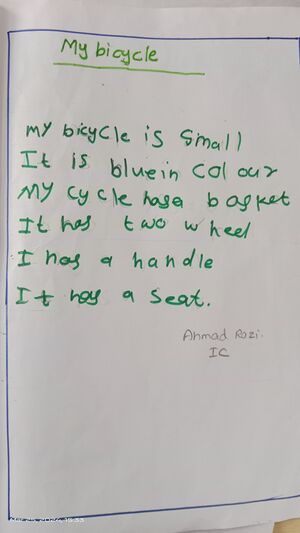 My bicycle
My bicycle is small
It is bluein colour
My cycle hasa basket
It has two wheel
I has a handle
It has a seat.
Ahmad Rozi.
IC